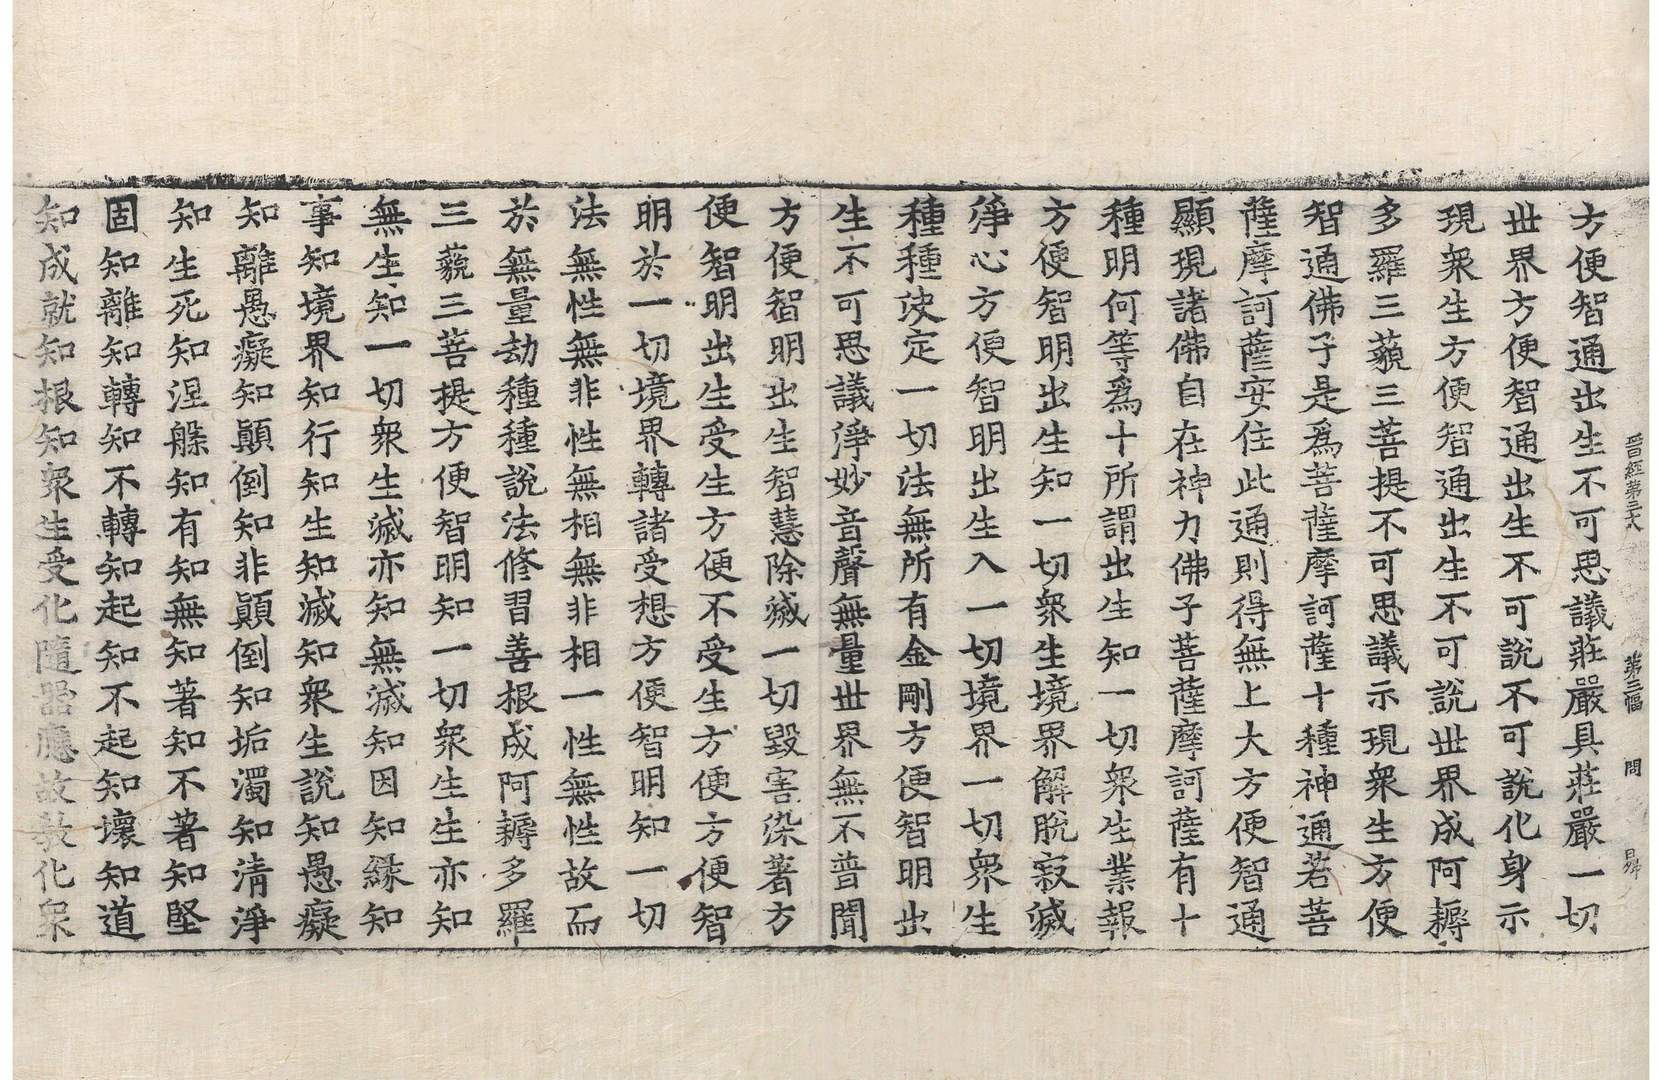 晋經第三六 第三幅 問
方便智通出生不可思議莊嚴具莊嚴一切
世界方便智通出生不可說不可說化身示
現衆生方便智通出生不可說世界成阿耨
多羅三藐三菩提不可思議示現衆生方便
智通佛子是爲菩薩摩訶薩十種神通若菩
薩摩訶薩安住此通則得無上大方便智通
顯現諸佛自在神力佛子菩薩摩訶薩有十
種明何等爲十所謂出生知一切衆生業報
方便智明出生知一切衆生境界解脫寂滅
淨心方便智明出生入一切境界一切衆生
種種決定一切法無所有金剛方便智明出
生不可思議淨妙音聲無量世界無不普聞
方便智明出生智慧除滅一切毀害染著方
便智明出生受生方便不受生方便方便智
明於一切境界轉諸受想方便智明知一切
法無性無非性無相無非相一性無性故而
於無量劫種種說法修習善根成阿耨多羅
三藐三菩提方便智明知一切衆生生亦知
無生知一切衆生滅亦知無滅知因知緣知
事知境界知行知生知滅知衆生說知愚癡
知離愚癡知顚倒知非顚倒知垢濁知清淨
知生死知涅槃知有知無知著知不著知堅
固知離知轉知不轉知起知不起知壞知道
知成就知根知衆生受化隨器應故教化衆